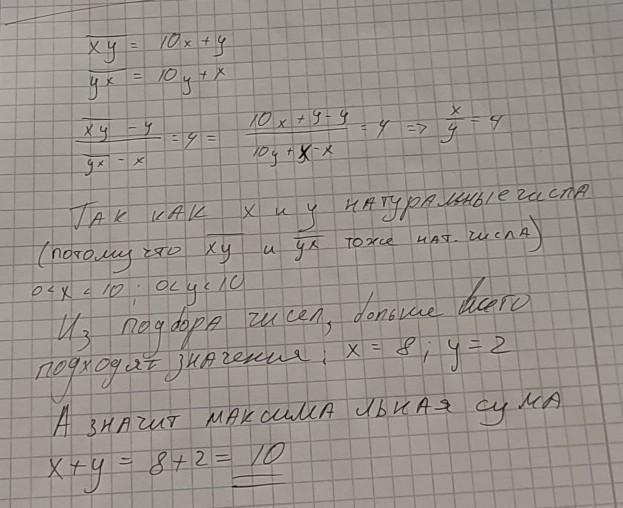 xy = 10x+y
yx = 10y+x
xy - y / yx - x = 4 = 10x+y-y / 10y+x-x = 4 => x/y = 4
Так как x и y натуральные числа
(потому что xy и yx тоже нат. числа)
0<x<10; 0<y<10
Из подбора чисел, больше всего
подходят значения: x = 8; y = 2
А значит максимальная сума
x+y = 8+2 = 10